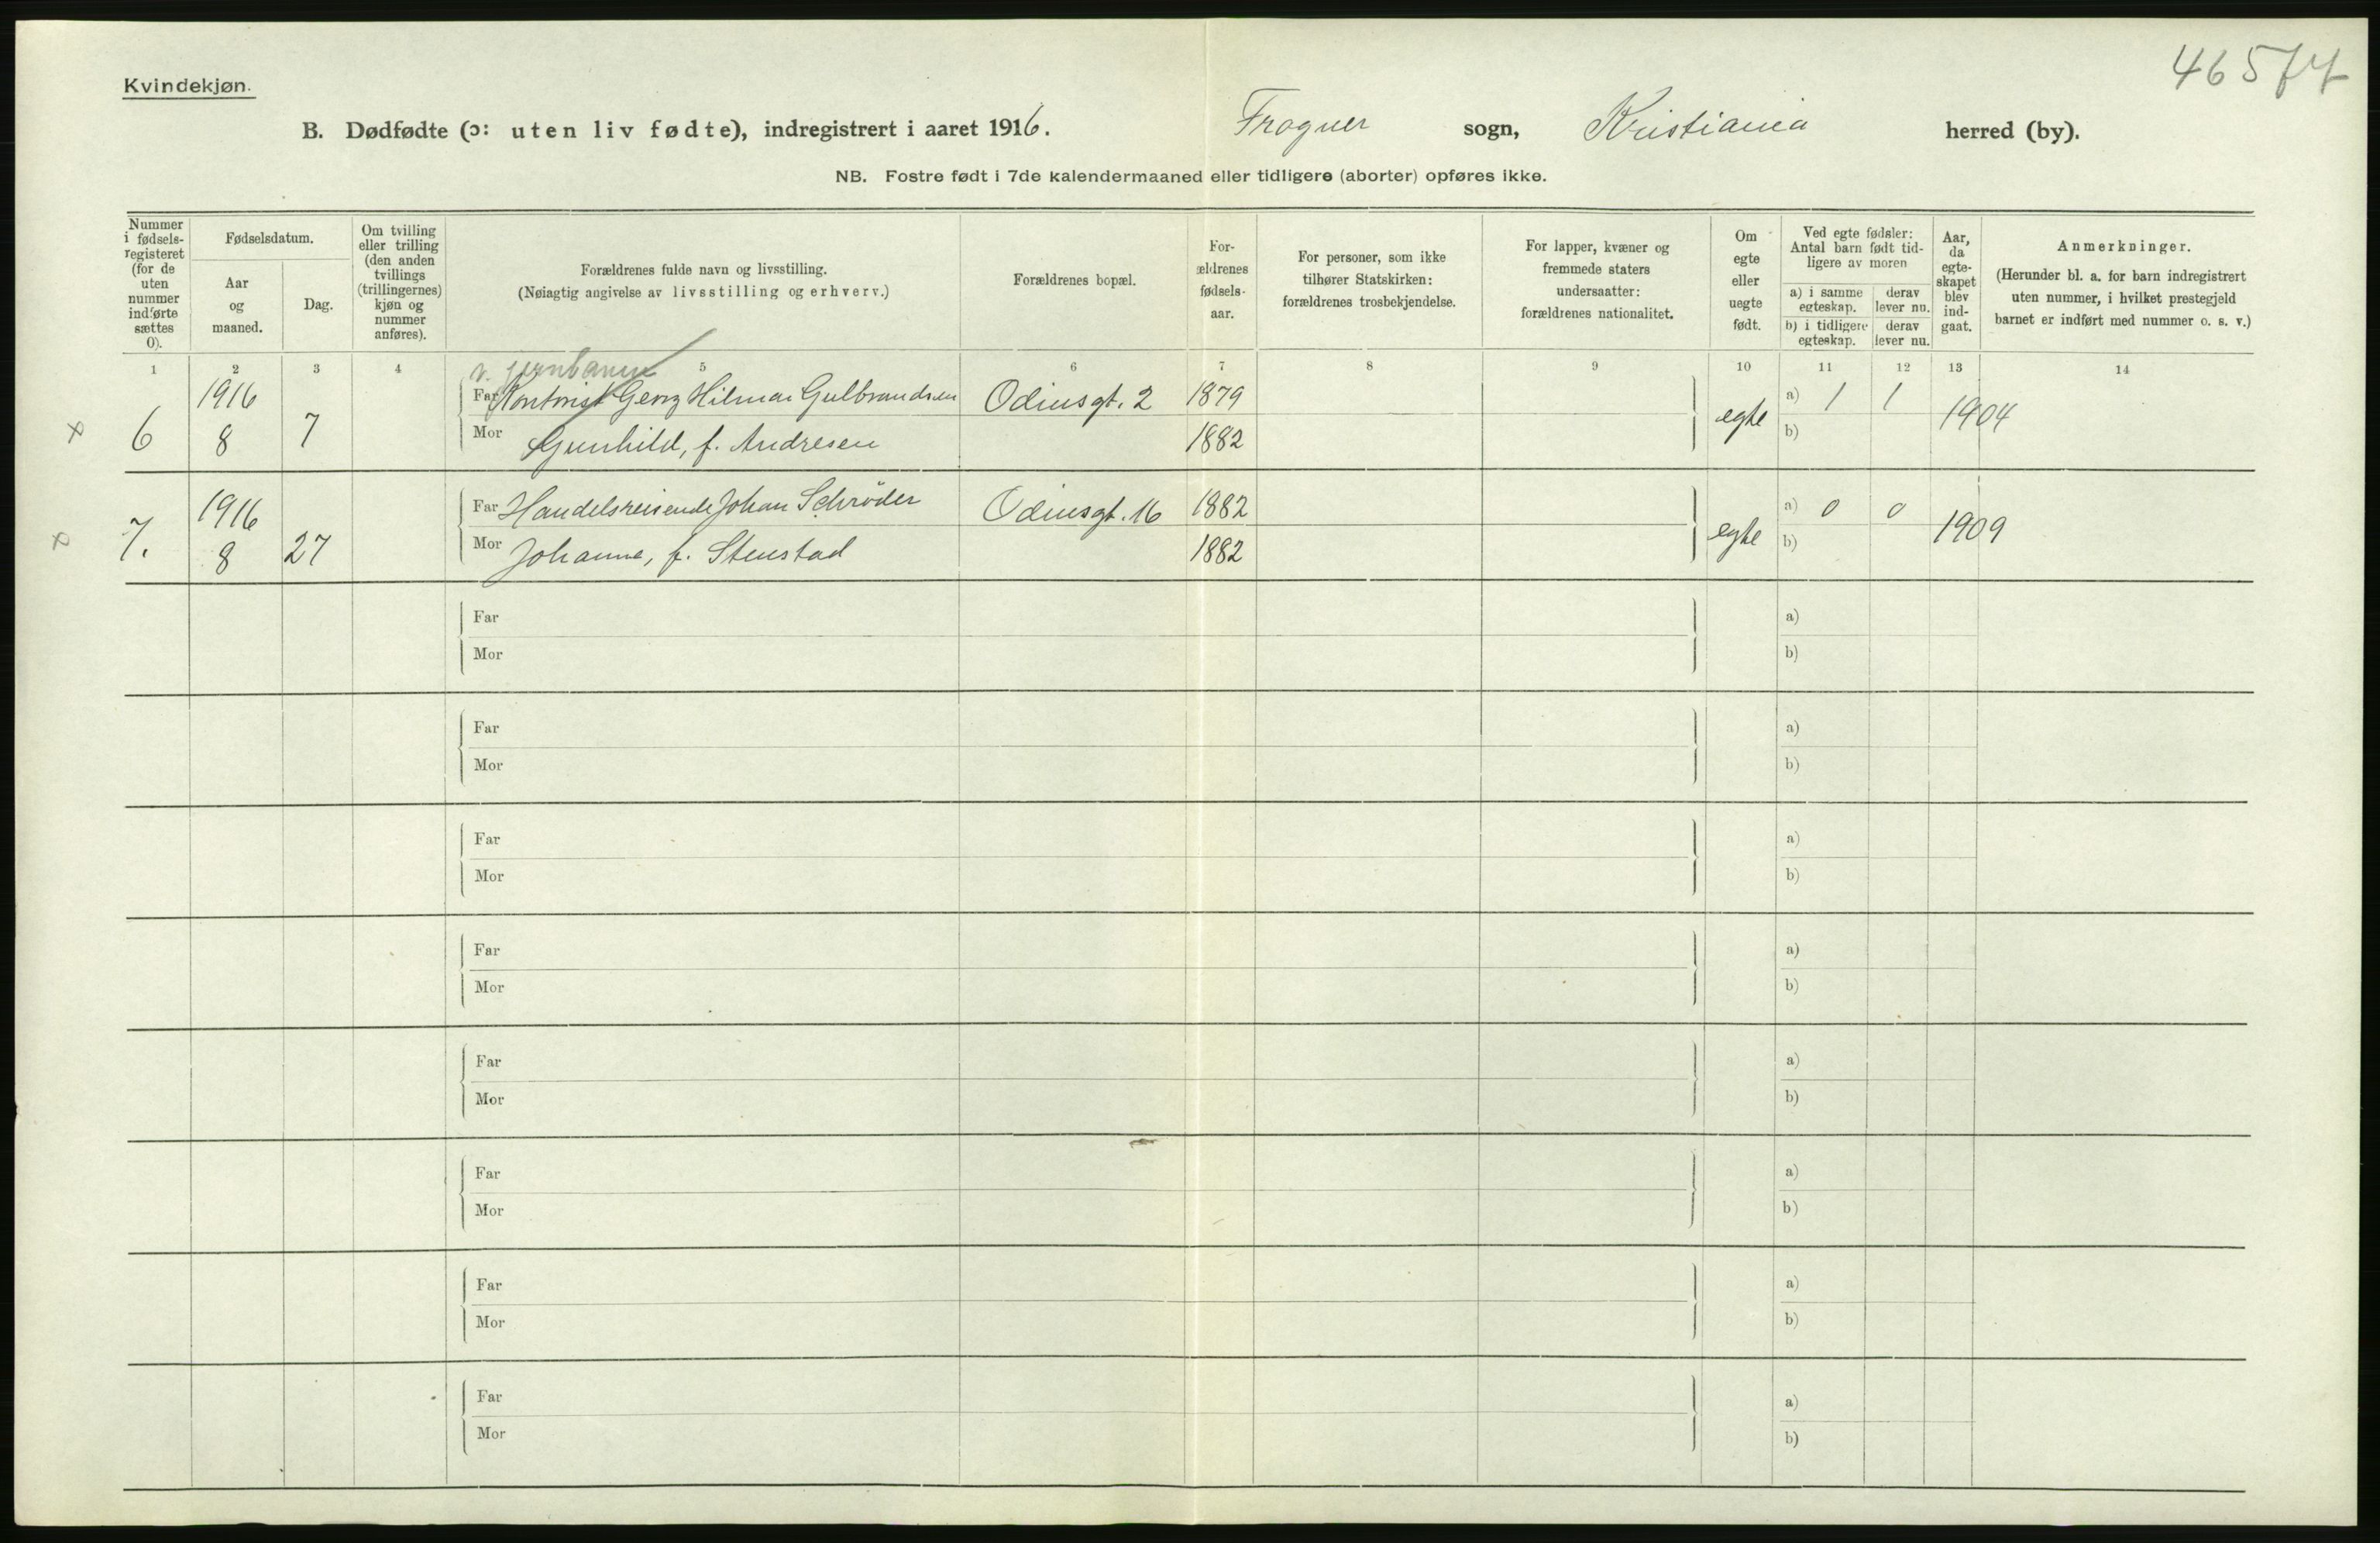 46574
Kvindekjøn.
B. Dødfødte (ɔ: uten liv fødte), indregistrert i aaret 1916. Frogner sogn, Kristiania herred (by).
NB. Fostre født i 7de kalendermaaned eller tidligere (aborter) opføres ikke.
Nummer i fødsels-registeret (for de uten nummer indførte sættes 0).
Fødselsdatum.
Aar og maaned.
Dag.
Om tvilling eller trilling (den anden tvillings (trillingernes) kjøn og nummer anføres).
Forældrenes fulde navn og livsstilling.
(Nøiagtig angivelse av livsstilling og erhverv.)
Forældrenes bopæl.
For-ældrenes fødsels-aar.
For personer, som ikke tilhører Statskirken: forældrenes trosbekjendelse.
For lapper, kvæner og fremmede staters undersaatter: forældrenes nationalitet.
Om egte eller uegte født.
Ved egte fødsler: Antal barn født tid-ligere av moren
a) i samme egteskap. derav lever nu.
b) i tidligere egteskap. derav lever nu.
Aar, da egte-skapet blev ind-gaat.
Anmerkninger.
(Herunder bl. a. for barn indregistrert uten nummer, i hvilket prestegjeld barnet er indført med nummer o. s. v.)
1 2 3 4 5 6 7 8 9 10 11 12 13 14
v. jernbanen
6 1916 8 7 Far Kontorist Georg Hilmar Gulbrandsen Odinsgt. 2 1879 egte a) 1 1 1904
Mor Gunhild, f. Andresen 1882 b)
7. 1916 8 27 Far Handelsreisende Johan Schröder Odinsgt. 16 1882 egte a) 0 0 1909
Mor Johanne, f. Stenstad 1882 b)
Far a)
Mor b)
Far a)
Mor b)
Far a)
Mor b)
Far a)
Mor b)
Far a)
Mor b)
Far a)
Mor b)
Far a)
Mor b)
Far a)
Mor b)